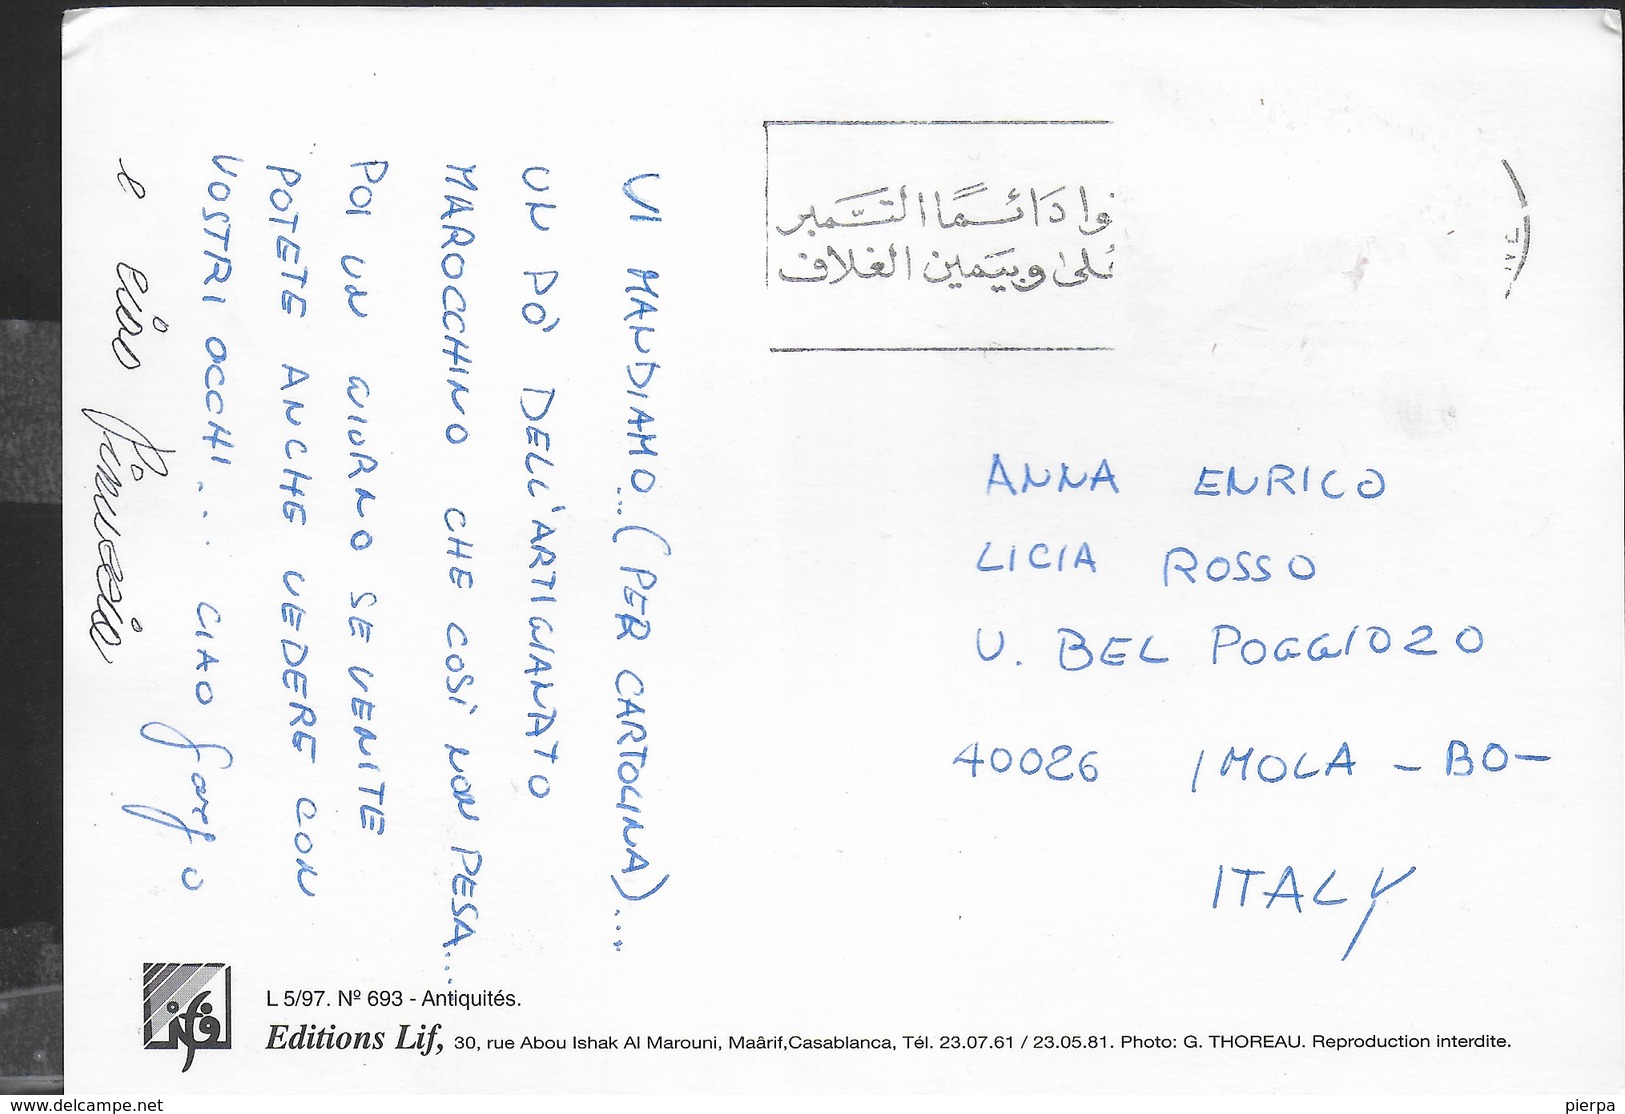 VI MANDIAMO...(PER CARTOLINA)....
UN PÒ DELL'ARTIGIANATO
MAROCCHINO CHE COSÌ NON PESA...
POI UN GIORNO SE VENITE
POTETE ANCHE VEDERE CON
VOSTRI OCCHI... CIAO
e ciao
وا دَائمًا التَّمبر
على وبيَمين الغلاف
ANNA ENRICO
LICIA ROSSO
V. BEL POGGIO 20
40026 IMOLA - BO -
ITALY
L 5/97. Nº 693 - Antiquités.
Editions Lif, 30, rue Abou Ishak Al Marouni, Maârif,Casablanca, Tél. 23.07.61 / 23.05.81. Photo: G. THOREAU. Reproduction interdite.
www.delcampe.net
pierpa